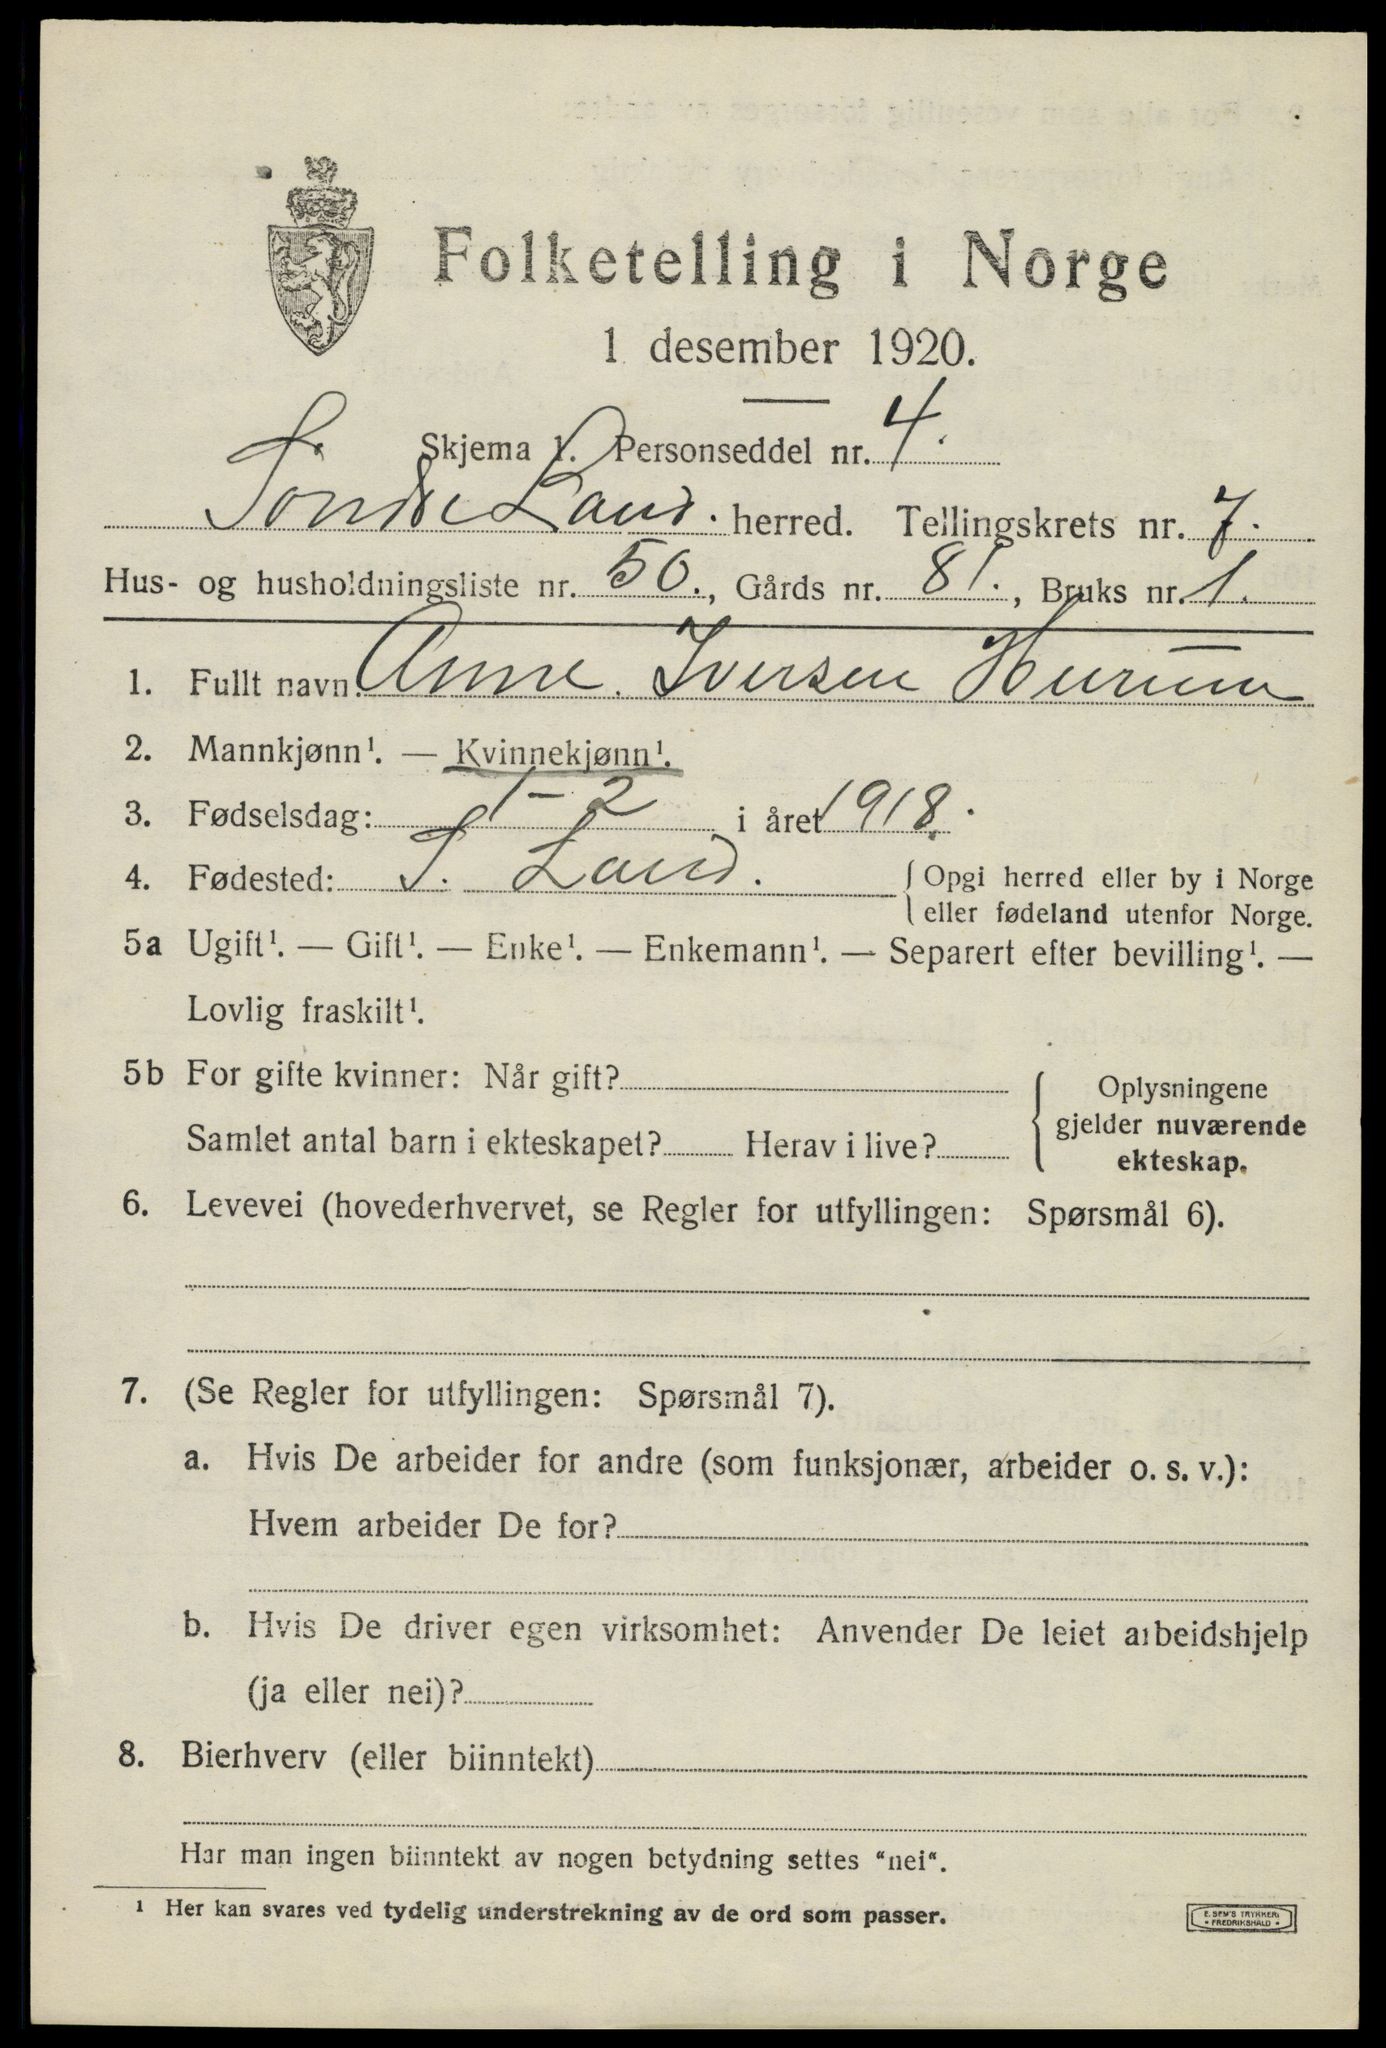 Folketelling i Norge
1 desember 1920.
Skjema 1. Personseddel nr. 4.
Søndre Land. herred. Tellingskrets nr. 7.
Hus- og husholdningsliste nr. 50., Gårds nr. 81., Bruks nr. 1.
1. Fullt navn: Anne. Iversen Hurum
2. Mannkjønn¹. — Kvinnekjønn¹.
3. Fødselsdag: 1-2 i året 1918.
4. Fødested: S. Land. { Opgi herred eller by i Norge
eller fødeland utenfor Norge.
5a Ugift¹. — Gift¹. — Enke¹. — Enkemann¹. — Separert efter bevilling¹. —
Lovlig fraskilt¹.
5b For gifte kvinner: Når gift?
Samlet antal barn i ekteskapet? Herav i live?
{ Oplysningene
gjelder nuværende
ekteskap.
6. Levevei (hovederhvervet, se Regler for utfyllingen: Spørsmål 6).
7. (Se Regler for utfyllingen: Spørsmål 7).
a. Hvis De arbeider for andre (som funksjonær, arbeider o. s. v.):
Hvem arbeider De for?
b. Hvis De driver egen virksomhet: Anvender De leiet arbeidshjelp
(ja eller nei)?
8. Bierhverv (eller biinntekt)
Har man ingen biinntekt av nogen betydning settes "nei".
¹ Her kan svares ved tydelig understrekning av de ord som passer.
E. SEM'S TRYKKERI
• FREDRIKSHALD •